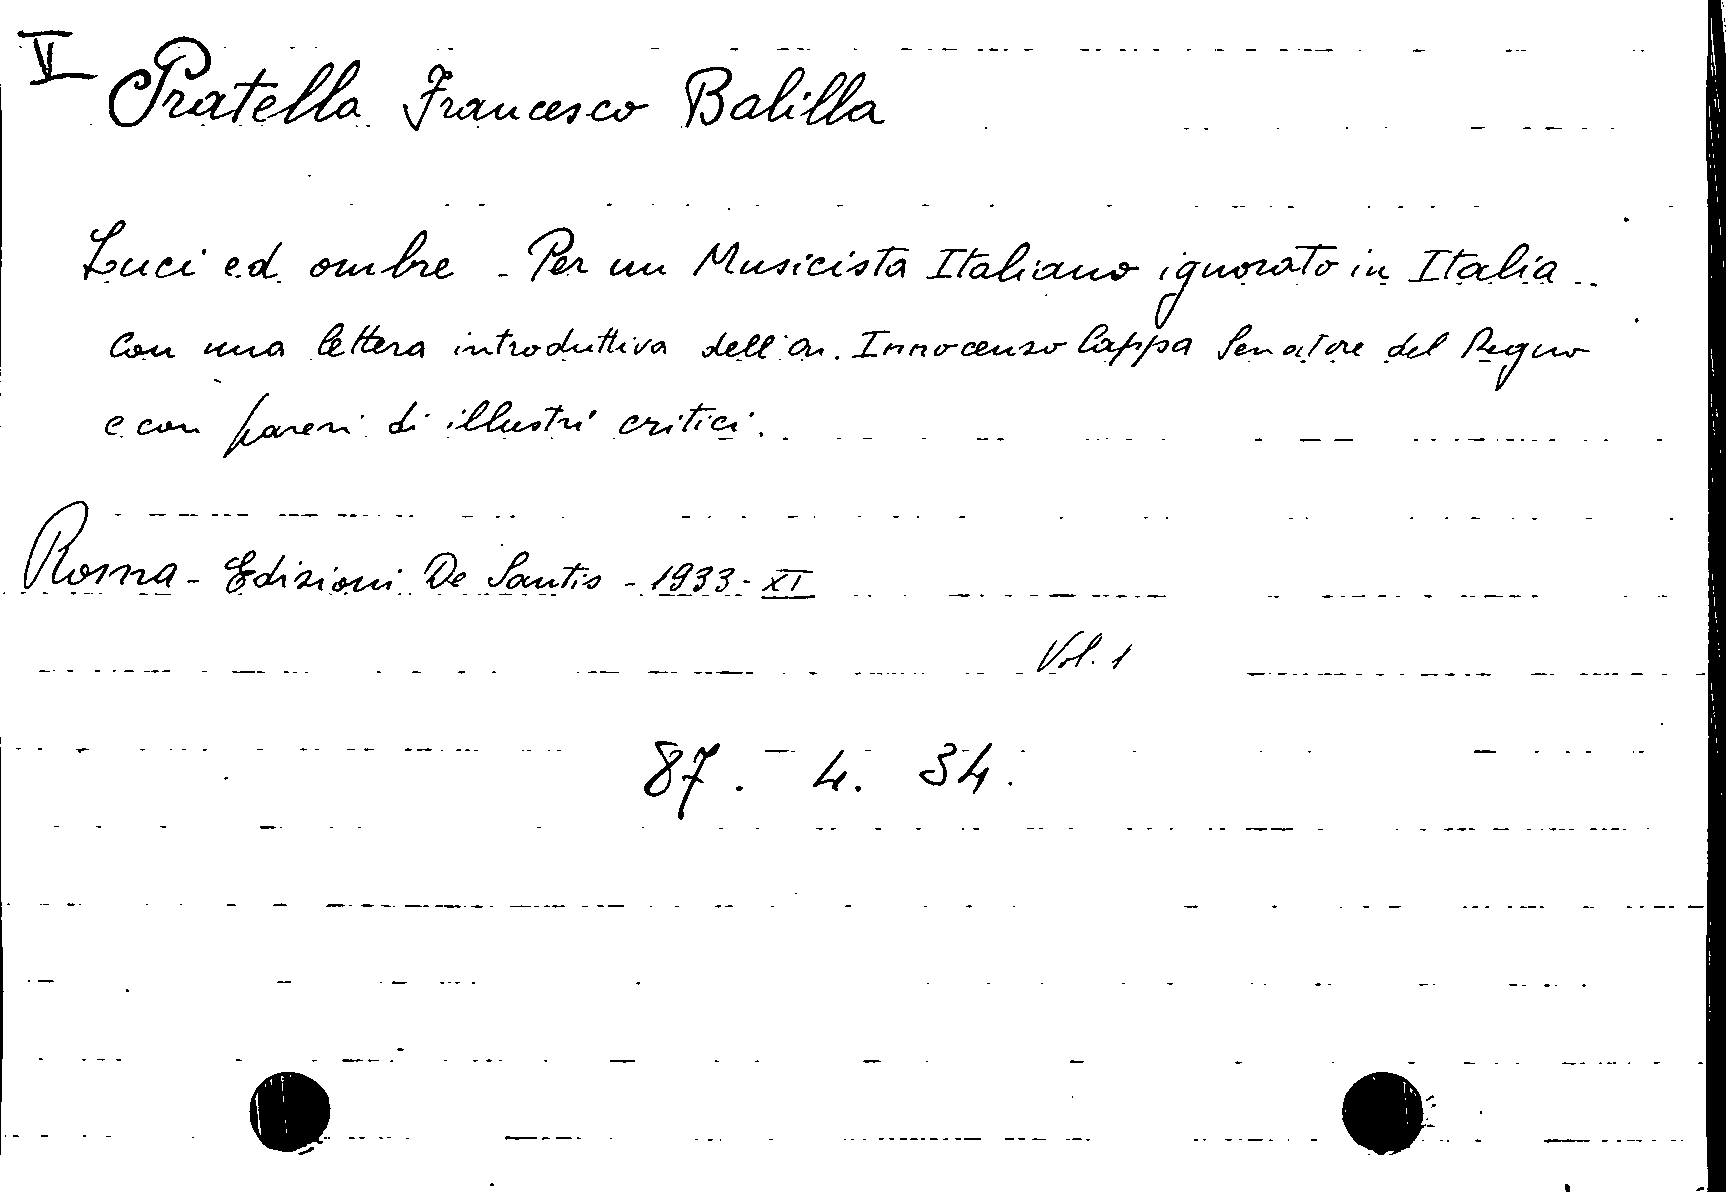 V Pratella Francesco Balilla
Luci ed ombre - Per un Musicista Italiano ignorato in Italia -
Con una lettera introduttiva dell'on. Innocenzo Cappa Senatore del Regno
e con pareri di illustri critici.
Roma - Edizioni De Santis - 1933 - XI
Vol. 1
87. 4. 34.